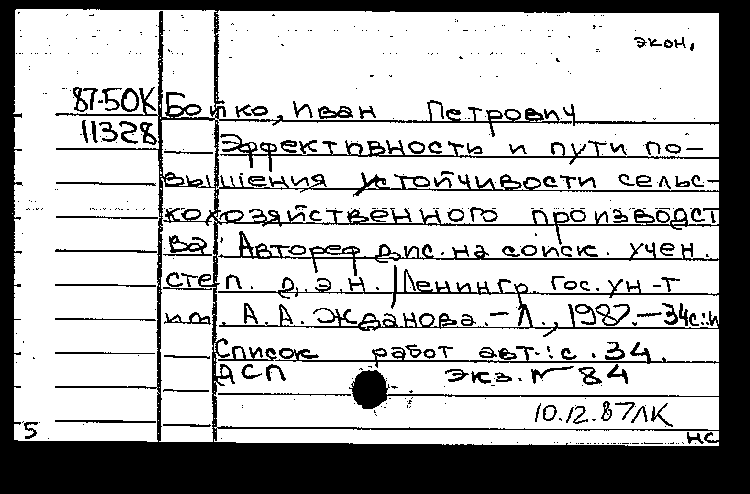 экон.
87-50К Бойко, Иван Петрович
11328 Эффективность и пути по-
вышения устойчивости сельс-
кохозяйственного производст
ва: Автореф дис. на соиск. учен.
степ. д.э.н. / Ленингр. гос. ун-т
им. А. А. Жданова. - Л., 1987. - 34с.:и
Список работ авт.: с. 34.
ДСП экз. № 84
10.12.87 ЛК
5 НС